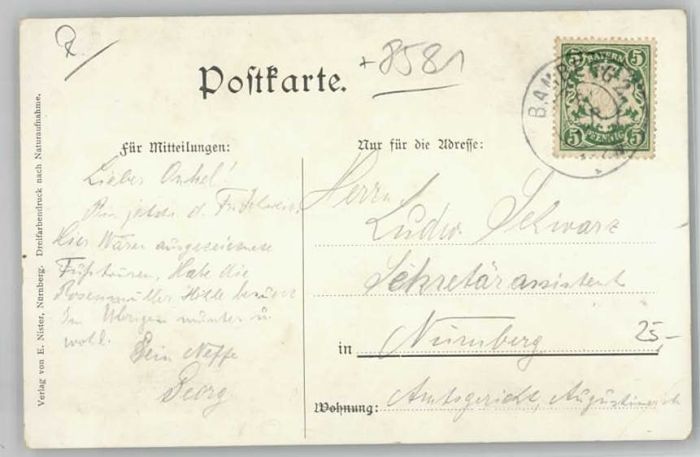 +8581
Postkarte.
BAYERN
5 5
5 5
PFENNIG
BAMBERG 2
Für Mitteilungen:
Nur für die Adresse:
Lieber Onkel!
d.
Hier wären ausgezeichnete
Habe die
Rosenmüller Höhle besucht
Im Übrigen munter u.
wohl.
Dein Neffe
Georg
Herrn
Ludw. Schwarz
Sekretärassistent
in Nürnberg
25,-
Wohnung: Amtsgericht,
Verlag von E. Nister, Nürnberg. Dreifarbendruck nach Naturaufnahme.